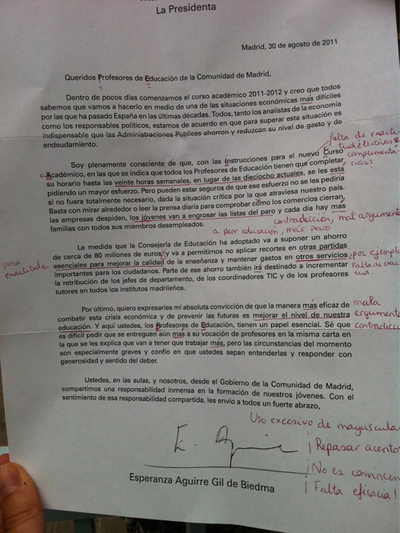 La Presidenta
Madrid, 30 de agosto de 2011
Queridos Profesores de Educación de la Comunidad de Madrid,
Dentro de pocos días comenzamos el curso académico 2011-2012 y creo que todos
sabemos que vamos a hacerlo en medio de una de las situaciones económicas mas difíciles
por las que ha pasado España en las últimas décadas. Todos, tanto los analistas de la economía
como los responsables políticos, estamos de acuerdo en que para superar esta situación es
indispensable que las Administraciones Públicas ahorren y reduzcan su nivel de gasto y de
endeudamiento.
falta de exactitud
Soy plenamente consciente de que, con las instrucciones para el nuevo Curso
Académico, en las que se indica que todos los Profesores de Educación tienen que completar
su horario hasta las veinte horas semanales, en lugar de las dieciocho actuales, se les está
pidiendo un mayor esfuerzo. Pero pueden estar seguros de que ese esfuerzo no se les pediría
si no fuera totalmente necesario, dada la situación crítica por la que atraviesa nuestro país.
Basta con mirar alrededor o leer la prensa diaria para comprobar cómo los comercios cierran,
las empresas despiden, los jóvenes van a engrosar las listas del paro y cada día hay mas
familias con todos sus miembros desempleados.
contradicción, mal argumento
a peor educación, más paro
La medida que la Consejería de Educación ha adoptado va a suponer un ahorro
de cerca de 80 millones de euros y va a permitirnos no aplicar recortes en otras partidas
esenciales para mejorar la calidad de la enseñanza y mantener gastos en otros servicios
¿por ejemplo?
poca exactitud
importantes para los ciudadanos. Parte de ese ahorro también irá destinado a incrementar
Falta de
la retribución de los jefes de departamento, de los coordinadores TIC y de los profesores
tutores en todos los institutos madrileños.
Por último, quiero expresarles mi absoluta convicción de que la manera mas eficaz de
combatir esta crisis económica y de prevenir las futuras es mejorar el nivel de nuestra
educación. Y aquí ustedes, los Profesores de Educación, tienen un papel esencial. Sé que
mala
argumentación
contradicción
es difícil pedir que se entreguen aún mas a su vocación de profesores en la misma carta en
la que se les explica que van a tener que trabajar más, pero las circunstancias del momento
son especialmente graves y confío en que ustedes sepan entenderlas y responder con
generosidad y sentido del deber.
Ustedes, en las aulas, y nosotros, desde el Gobierno de la Comunidad de Madrid,
compartimos una responsabilidad inmensa en la formación de nuestros jóvenes. Con el
sentimiento de esa responsabilidad compartida, les envío a todos un fuerte abrazo,
Uso excesivo de mayúsculas
¡Repasar acentos
¡No es
¡Falta eficacia!
Esperanza Aguirre Gil de Biedma